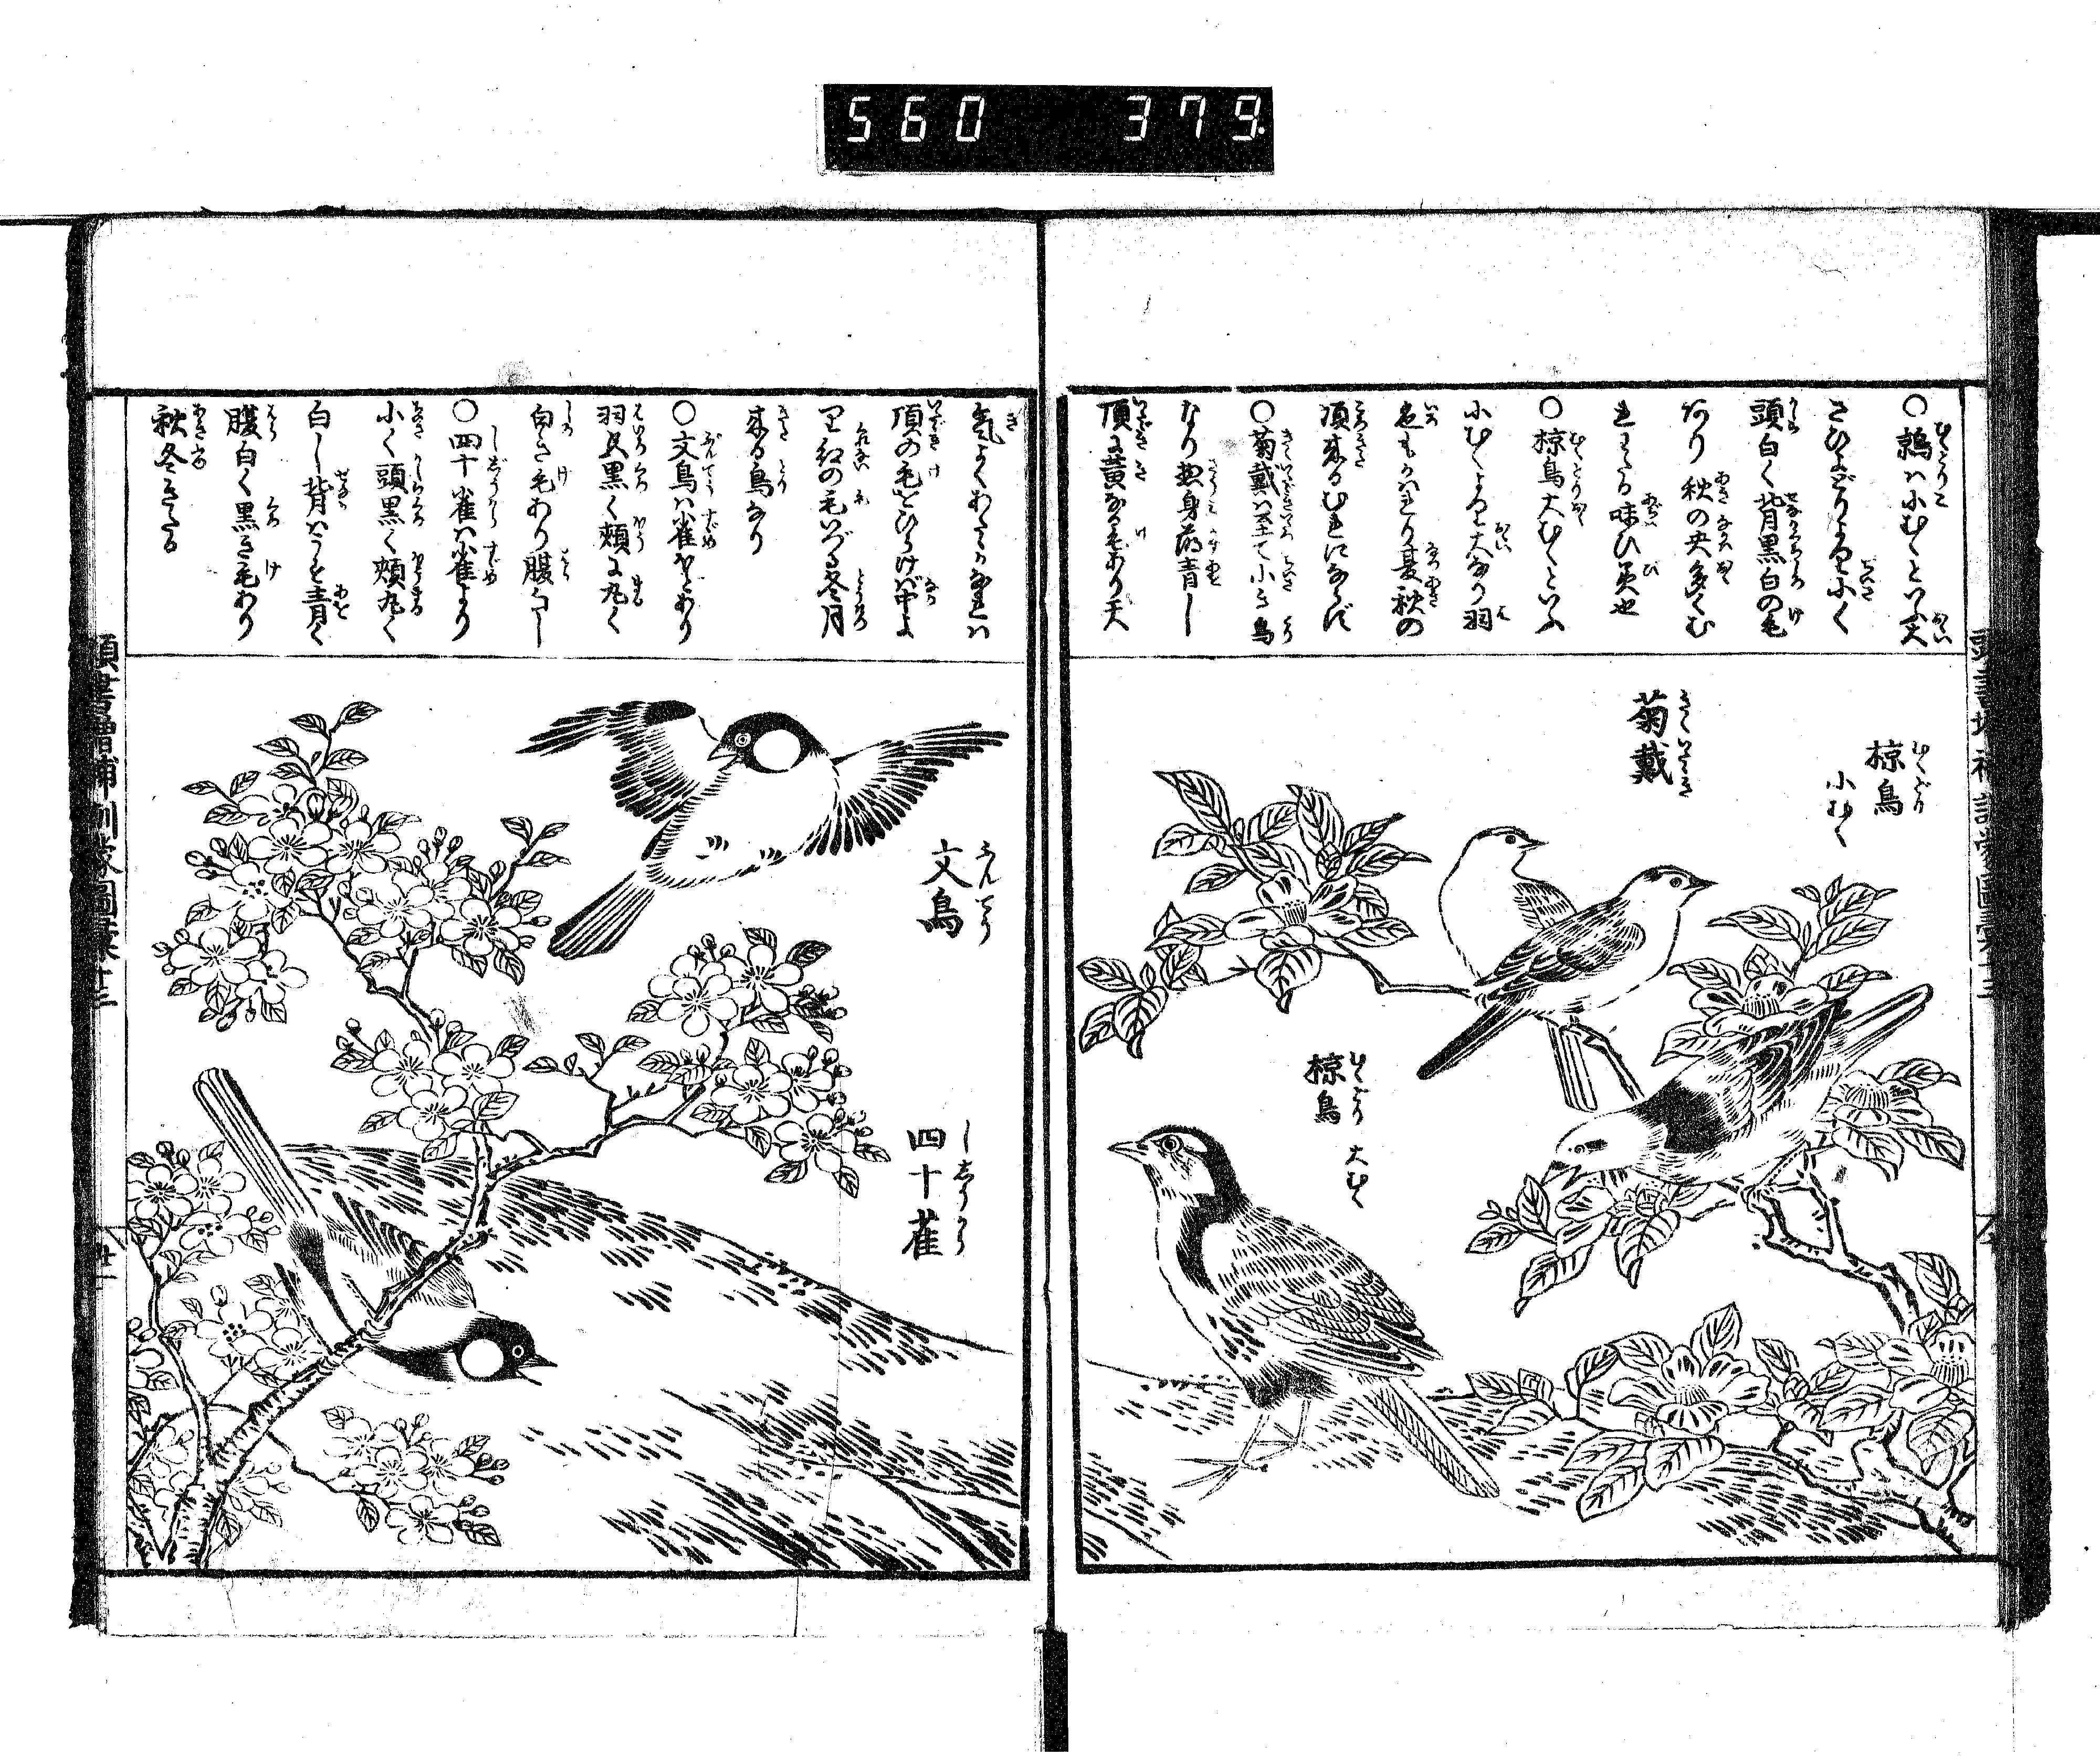 560 379.
○鶉ハ小むくといふ大
さひよどりより小く
頭白く背黒白の毛
あり秋の央多くむ
れわたる味ひ美也
○椋鳥大むくといふ
小むくより大なり羽
色もかハれり夏秋の
頃来るむれになるだ
○菊戴ハ至て小き鳥
なり惣身薄青し
頂に黄なる毛あり天
気よくあたゝかなれハ
頂の毛をひらけバ中よ
り紅の毛いづる冬月
来る鳥なり
○文鳥ハ雀ほどあり
羽尖黒く頬に丸く
白き毛あり腹白し
○四十雀ハ雀より
小く頭黒く頬丸く
白し背ハうす青く
腹白く黒き毛あり
秋冬きたる
椋鳥
むくどり
小むく
菊戴
きくいたゞき
椋鳥
むくどり
大むく
文鳥
ぶんてう
四十雀
しじうから
頭書増補訓蒙圖彙十三